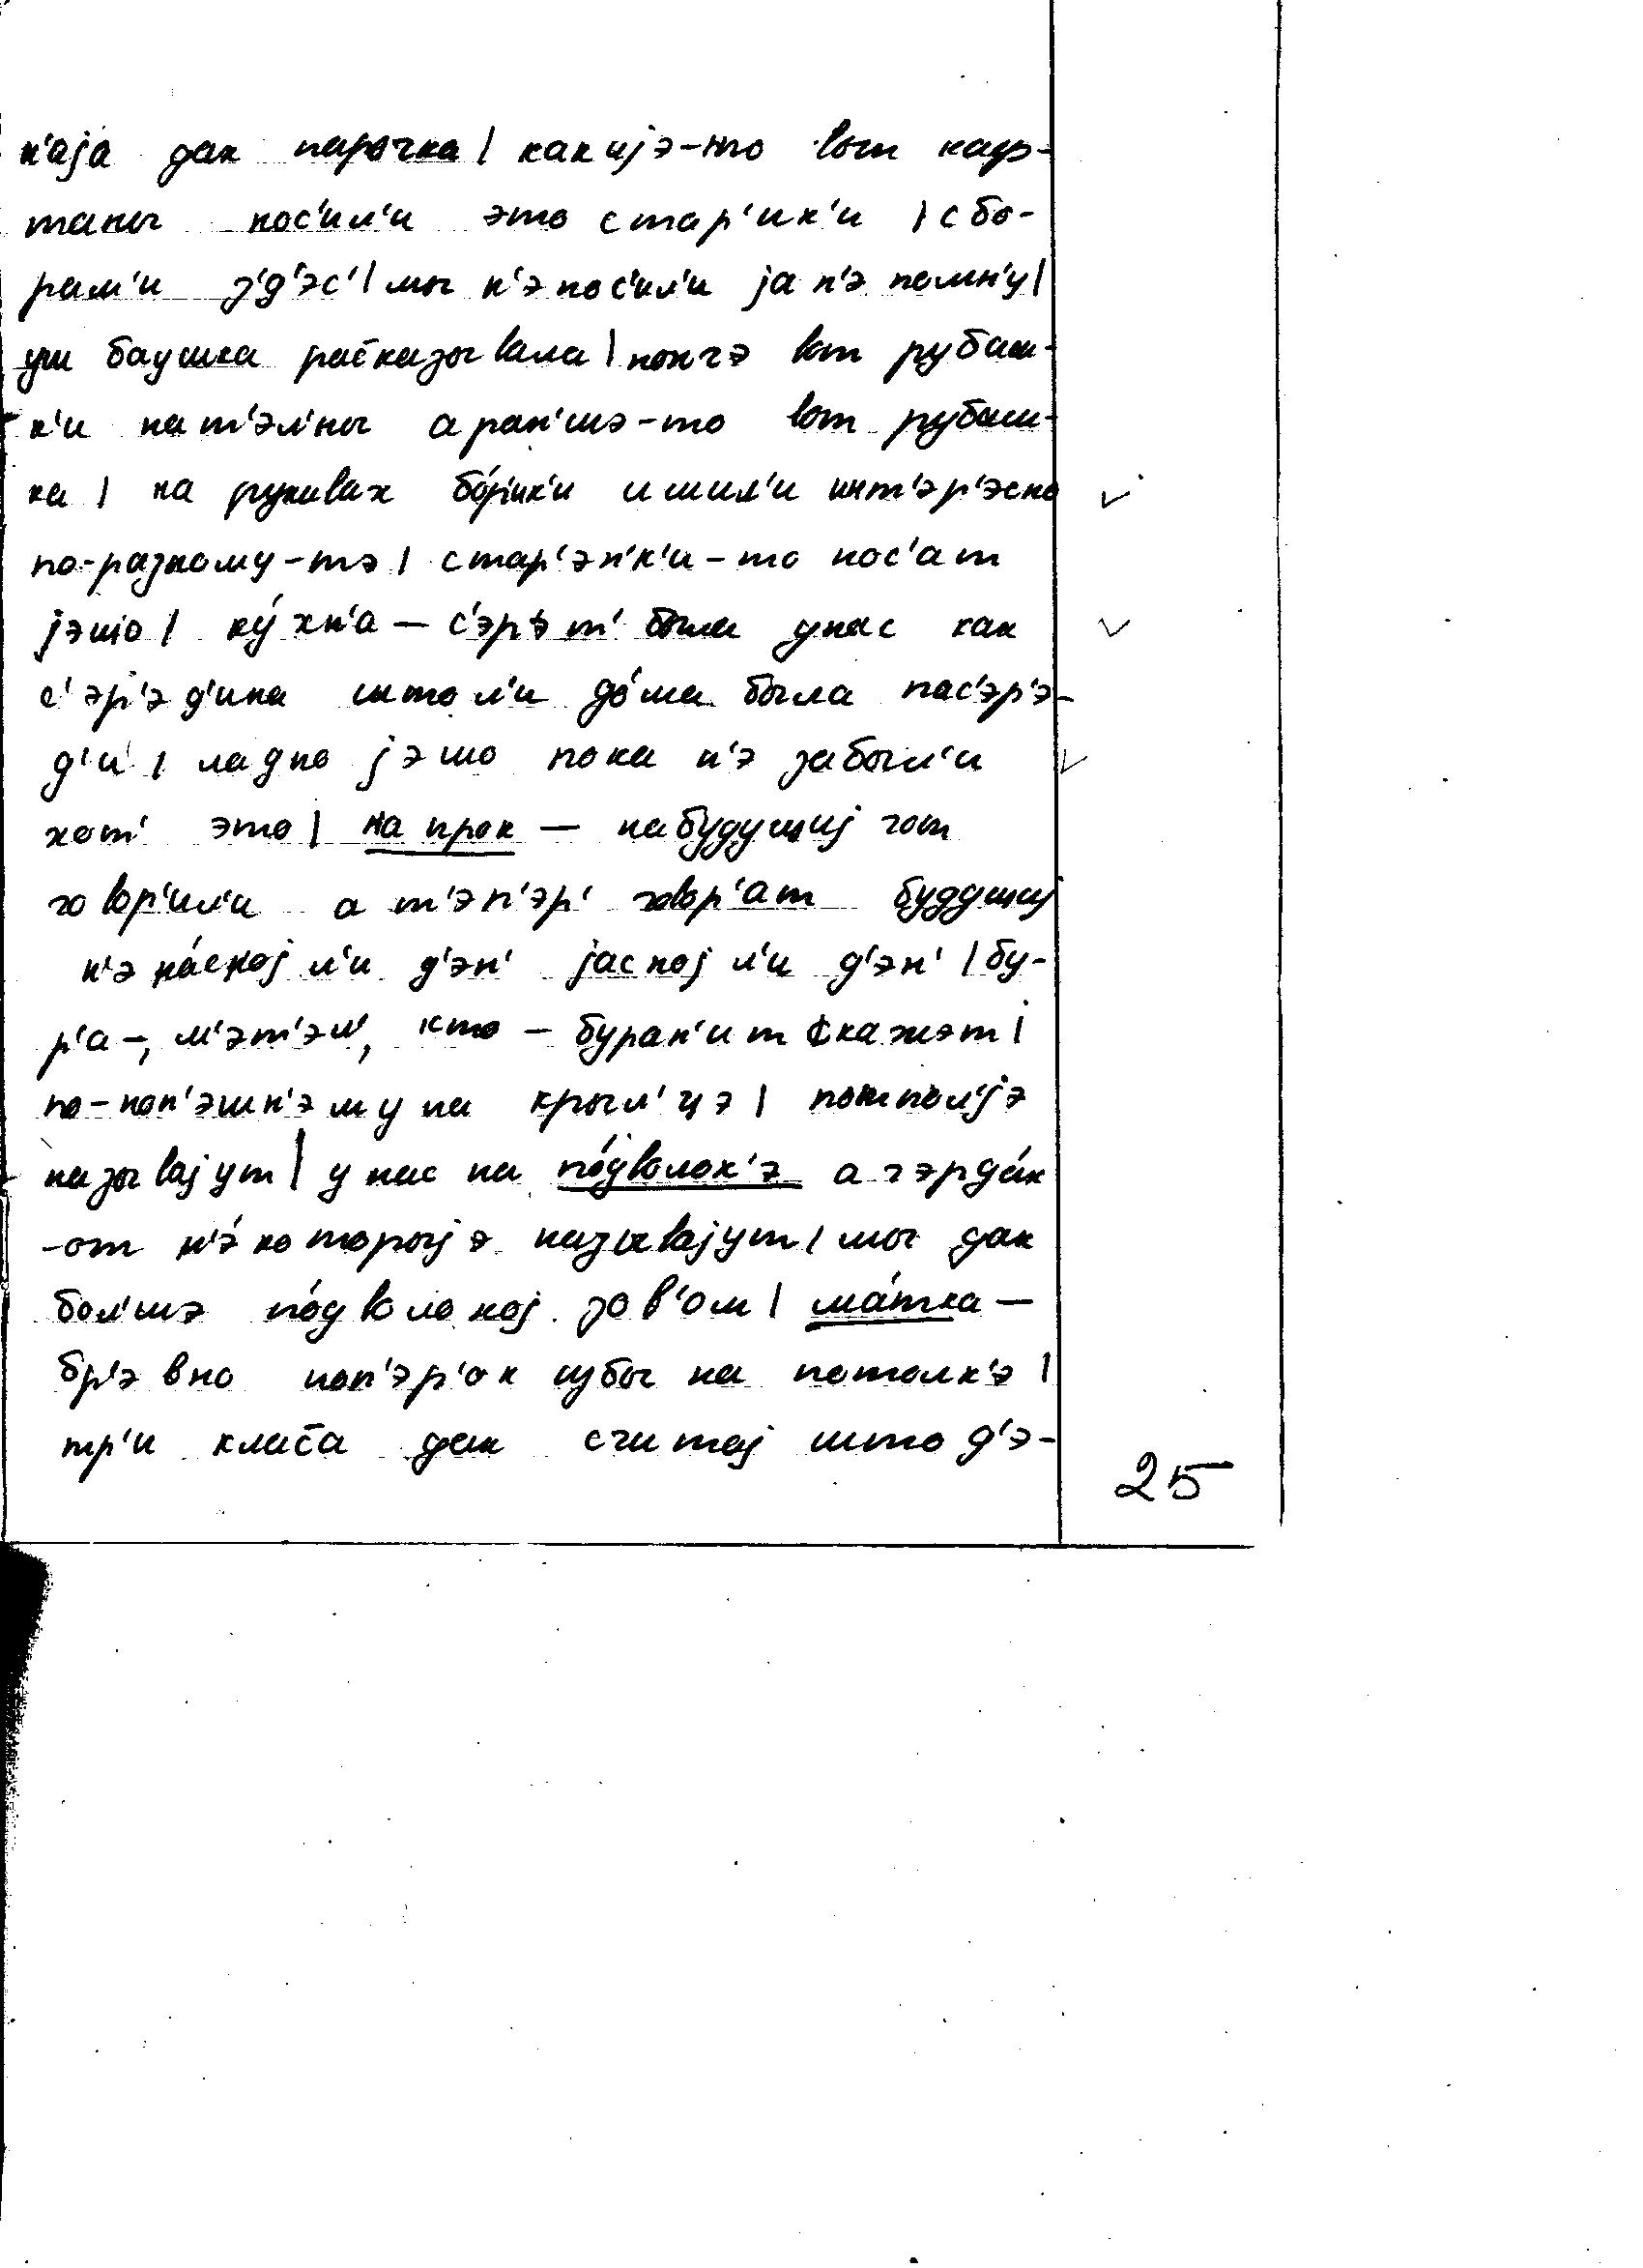 н'аjа дак парочка | какиjэ-то вот каф-
таны нос'ил'и это стар'ик'и | с бо-
рам'и з'д'эс' | мы н'э нос'ил'и jа н'э помн'у |
уш баушка рас̄казывала | нончэ вот рубаш-
к'и нат'эл'ны а ран'шэ-то вот рубаш-
ка | на рукавах бо́р'ик'и и шил'и инт'эр'эсно
по-разному-тэ | стар'эн'к'и-то нос'ат
jэшо | ку́хн'а – с'эр'эт' была у нас как
с'эр'эд'ина што л'и до́ма была пас'эр'э-
д'и́ | ладно jэшо пока н'э забыл'и
хот' это | на прок – на будущиj гот
говор'ил'и а т'эп'эр' говор'ат будущиj
н'э на́сноj л'и д'эн' jасноj л'и д'эн' | бу-
р'а –, м'эт'эл', кто – буран'ит скажэт |
по-нон'эшн'эму на крыл'цэ | потпол'jэ
называjут | у нас на по́дволок'э а чэрда́к
-от н'э́которыjэ называjут | мы дак
бол'шэ по́дволокоj зов'ом | ма́тка –
бр'эвно поп'эр'ок избы на потолк'э |
тр'и клас̄а дак считаj што д'э-
25